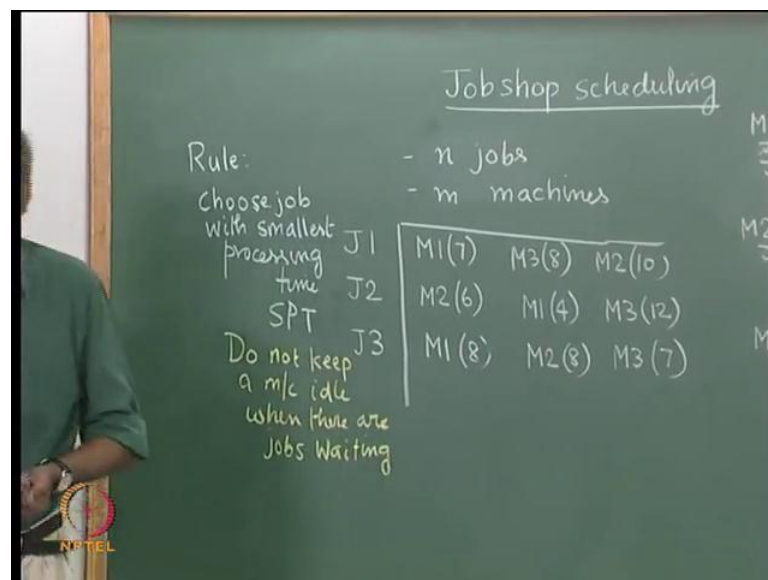 Jobshop scheduling
Rule:
choose job
with smallest
processing
time
SPT
Do not keep
a m/c idle
when there are
jobs waiting
- n jobs
- m machines
J1 M1(7) M3(8) M2(10)
J2 M2(6) M1(4) M3(12)
J3 M1(8) M2(8) M3(7)
M2
M
NPTEL